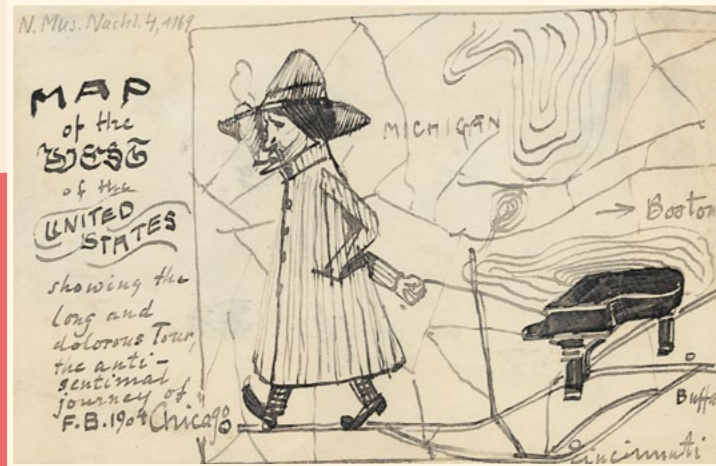 N. Mus. Nachl. 4, 1169
MAP
of the
WEST
of the
UNITED
STATES
showing the
long and
dolorous Tour,
the anti-
sentimal
journey of
F.B. 1904
Chicago
MICHIGAN
→ Boston
Buffa
Cincinnati